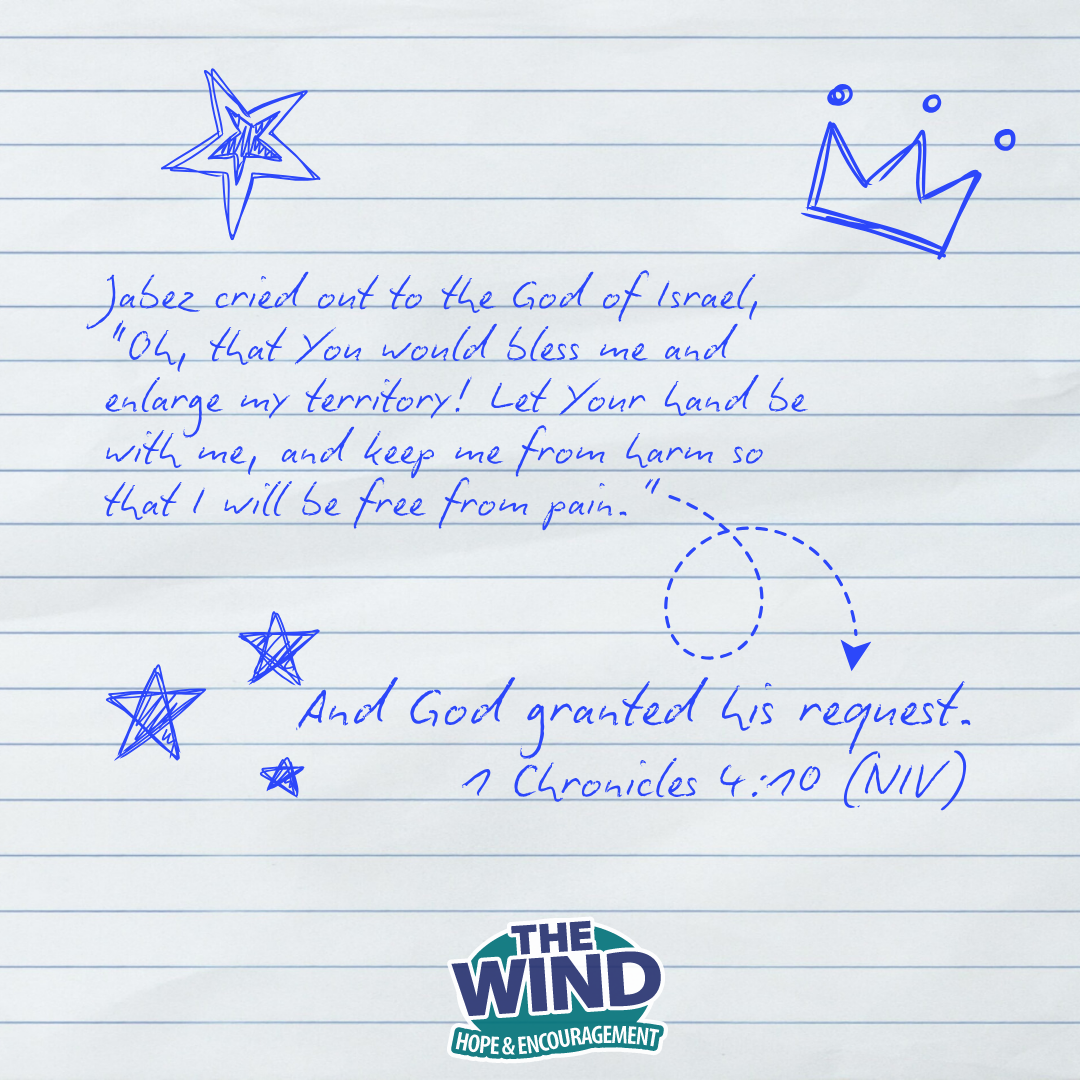 Jabez cried out to the God of Israel,
"Oh, that You would bless me and
enlarge my territory! Let Your hand be
with me, and keep me from harm so
that I will be free from pain."
And God granted his request.
1 Chronicles 4:10 (NIV)
THE
WIND
HOPE & ENCOURAGEMENT